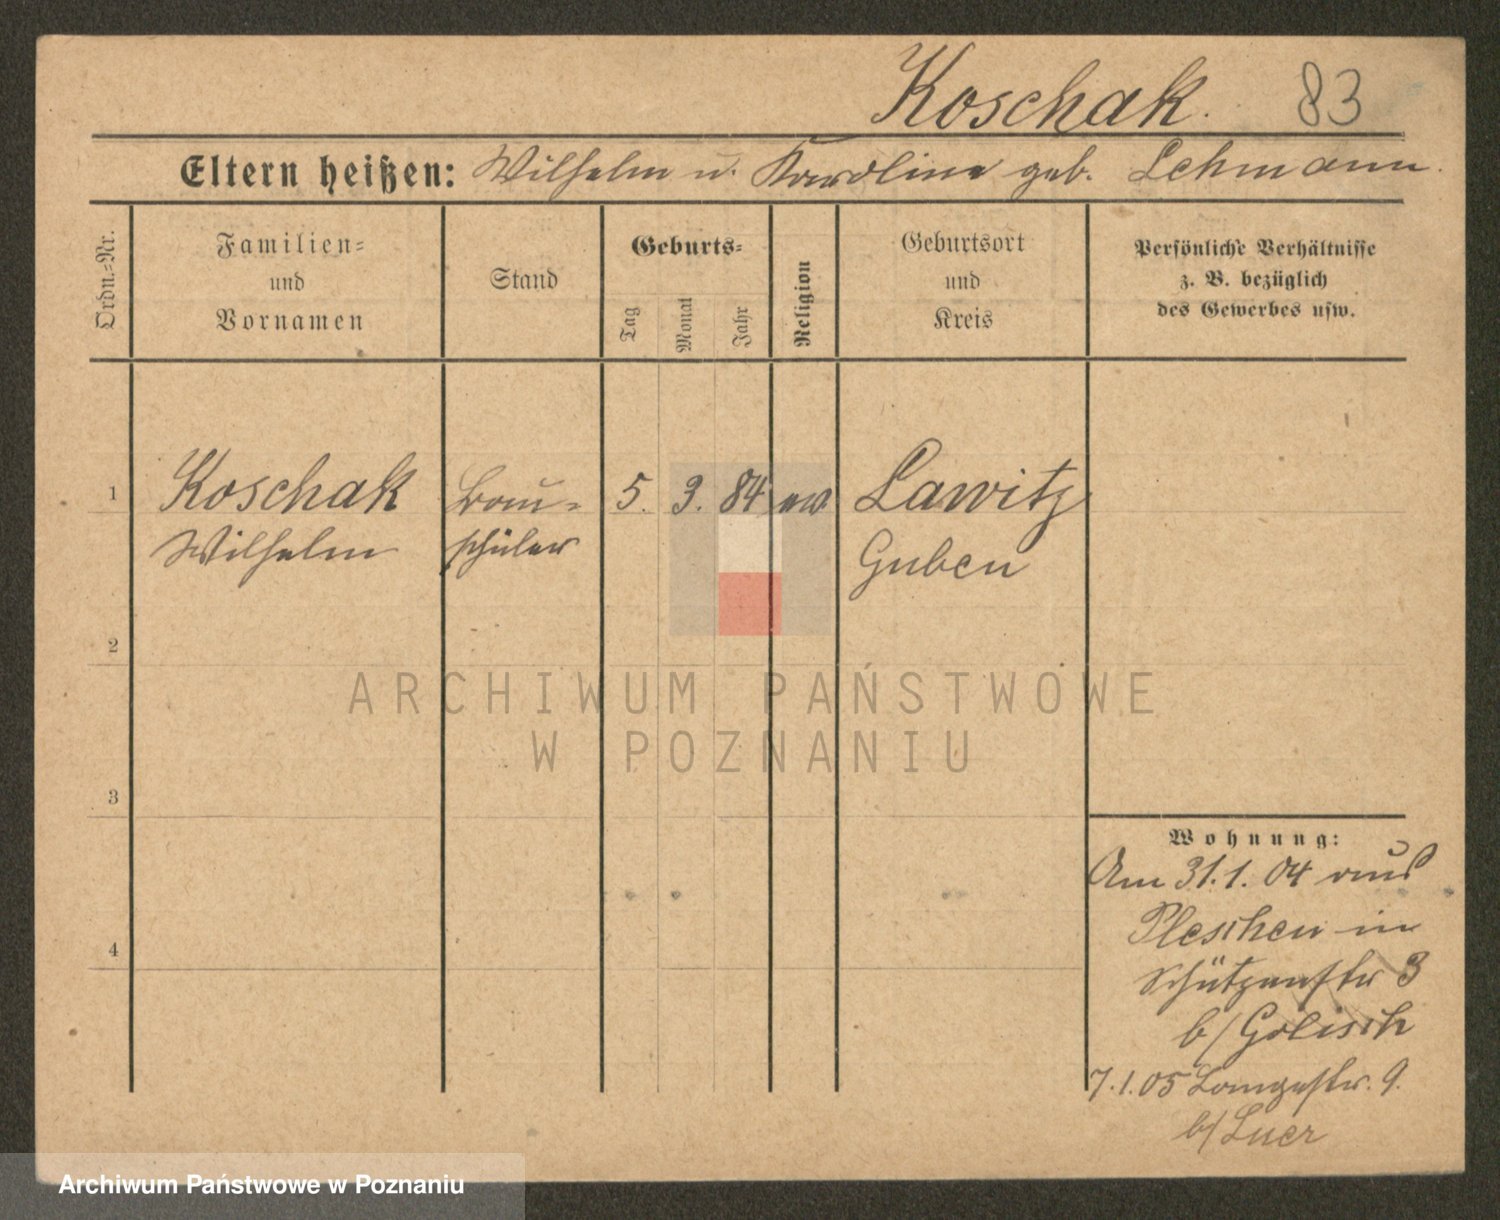 Koschak. 83
Eltern heißen: Wilhelm u. Karoline geb. Lehmann.
Ordn.=Nr.
Familien=
und
Vornamen
Stand
Geburts=
Tag
Monat
Jahr
Religion
Geburtsort
und
Kreis
Persönliche Verhältnisse
z. B. bezüglich
des Gewerbes usw.
1 Koschak Bau- 5. 3. 84 ev Lawitz
Wilhelm schüler Guben
2
3
4
Wohnung:
Am 31.1.04 aus
Pleschen in
Schützenstr 3
b/ Golisch
7.1.05 Langestr. 9.
b/ Luer
ARCHIWUM PAŃSTWOWE
W POZNANIU
Archiwum Państwowe w Poznaniu